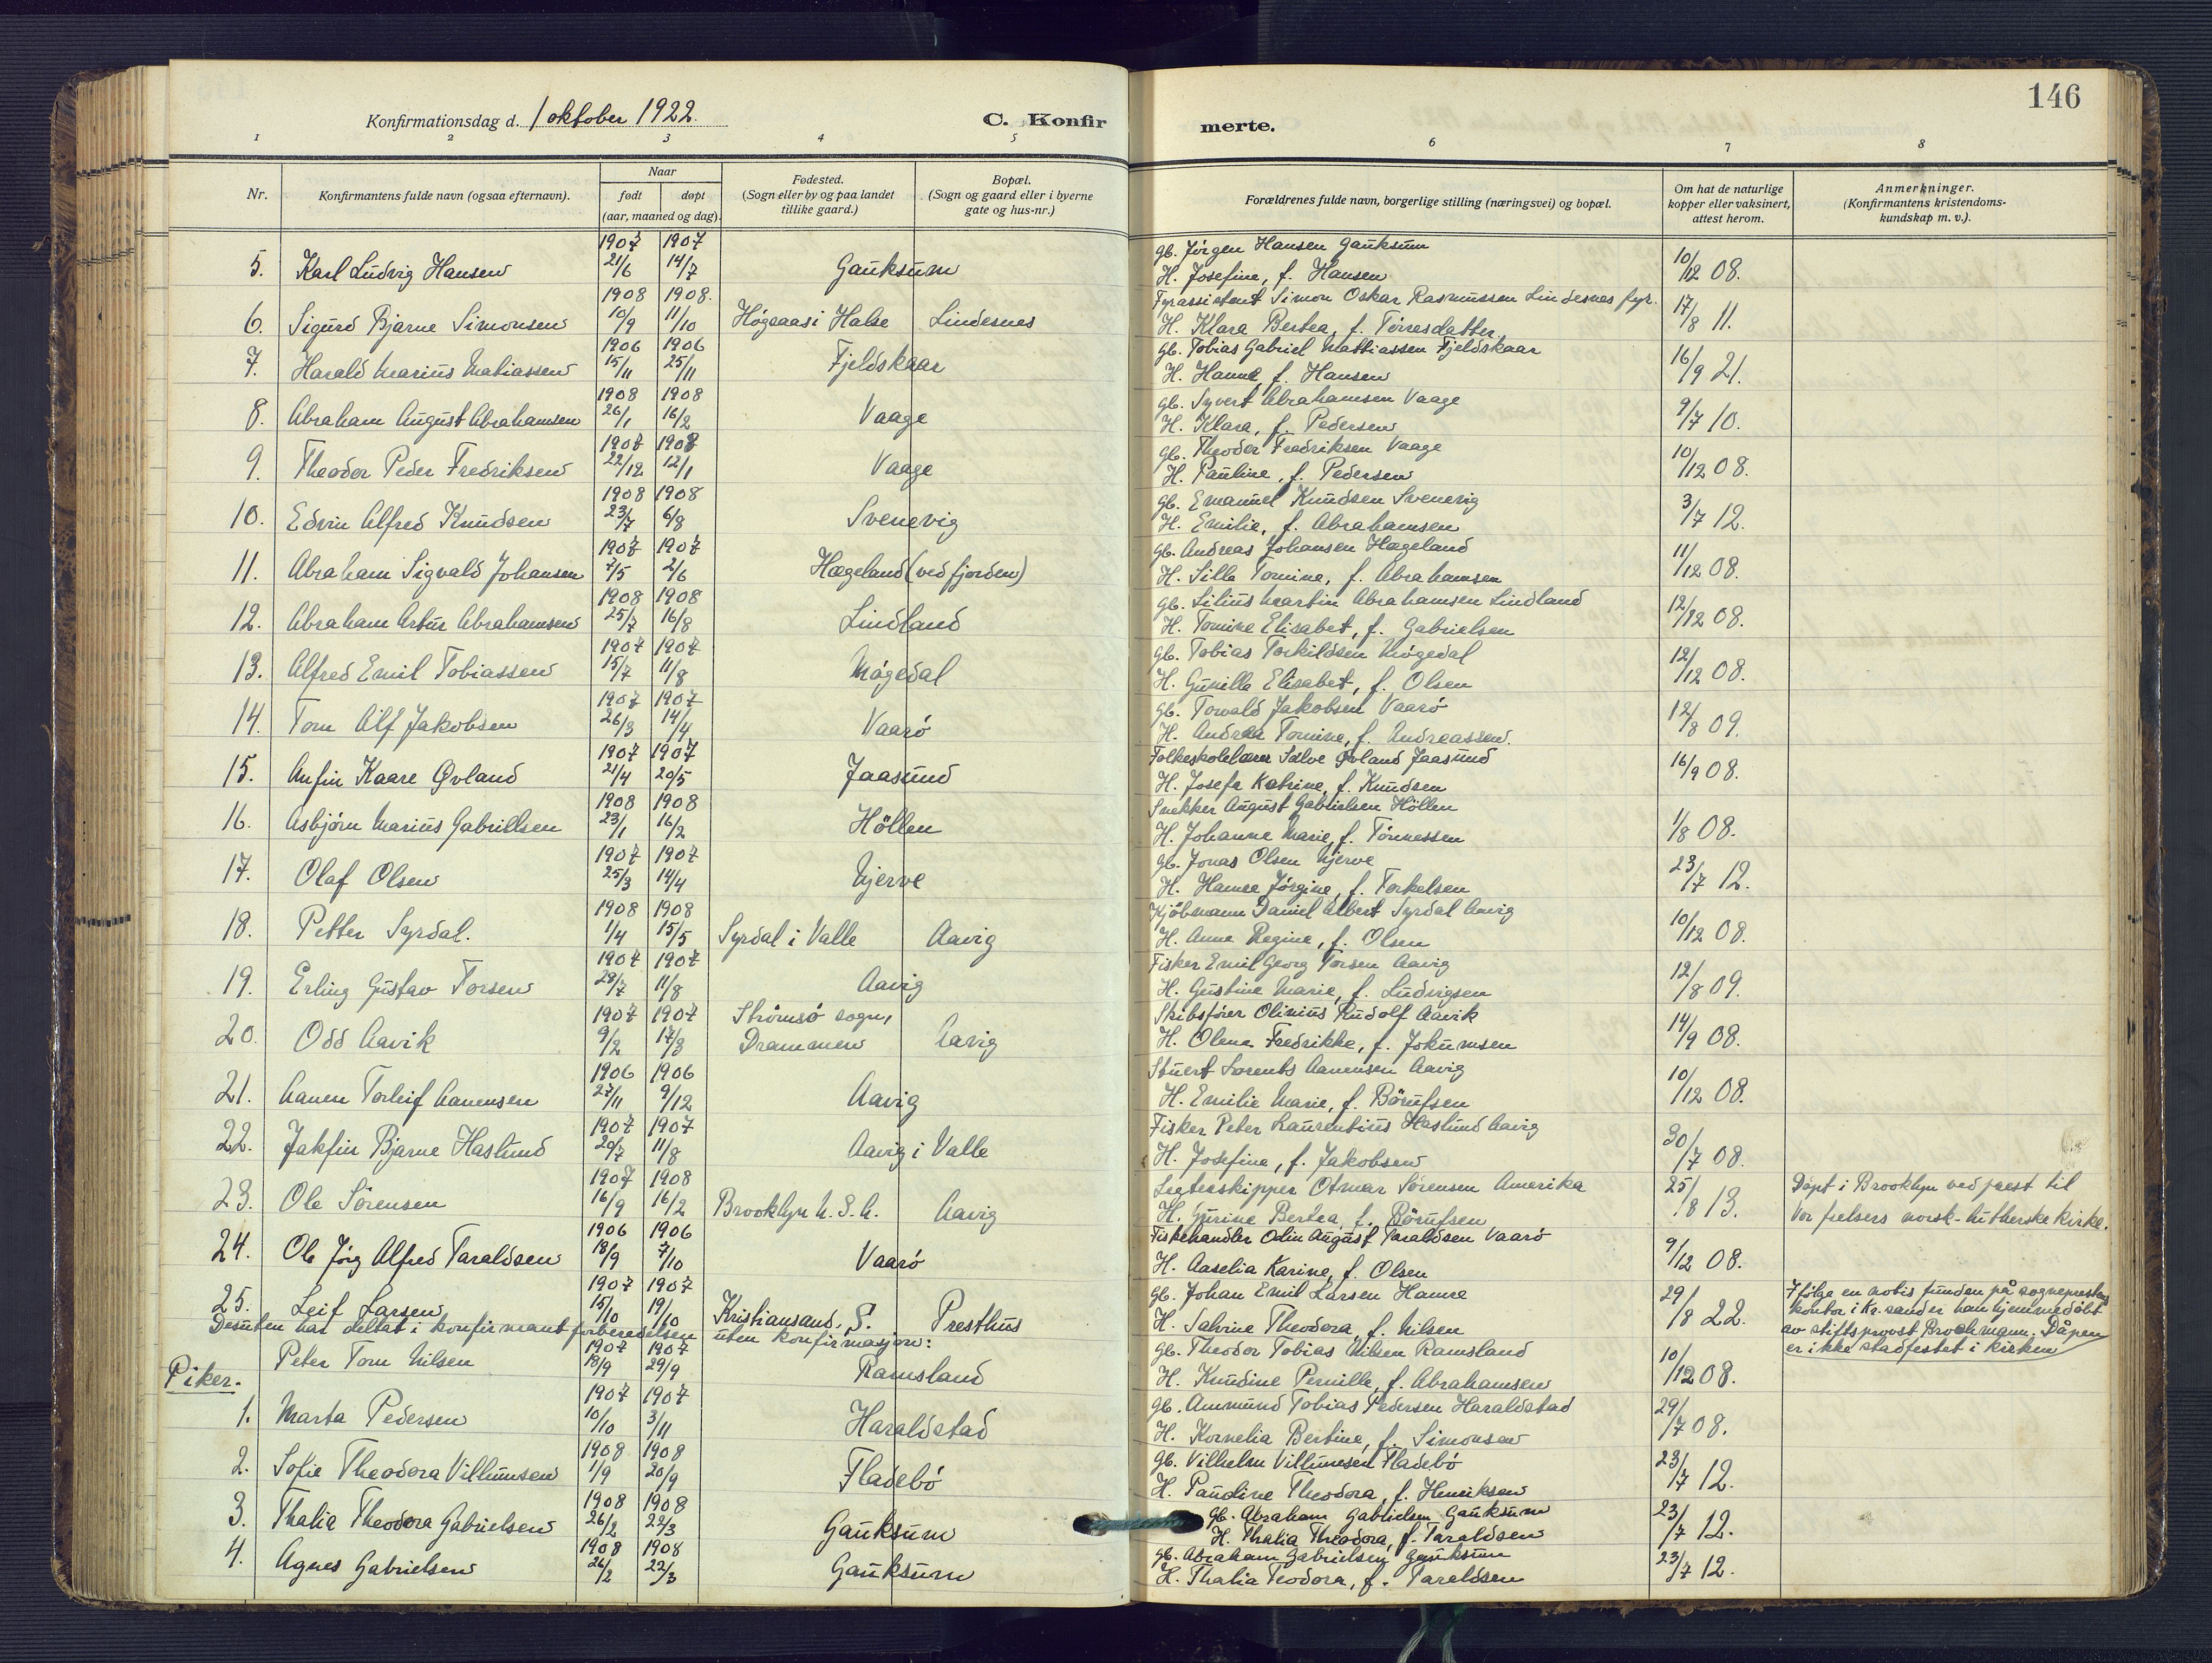 146
Konfirmationsdag d. 1 oktober 1922.
C. Konfirmerte.
1 2 3 4 5 6 7 8
Nr.
Konfirmantens fulde navn (ogsaa efternavn).
Naar
født døpt
(aar, maaned og dag).
Fødested.
(Sogn eller by og paa landet
tillike gaard.)
Bopæl.
(Sogn og gaard eller i byerne
gate og hus-nr.)
Forældrenes fulde navn, borgerlige stilling (næringsvei) og bopæl.
Om hat de naturlige
kopper eller vaksinert,
attest herom.
Anmerkninger.
(Konfirmantens kristendoms-
kundskap m. v.).
1907 1907 Gb. Jörgen Hansen Gauksum
5. Karl Ludvig Hansen 21/6 14/7 Gauksum H. Josefine, f. Hansen 10/12 08.
1908 1908. Fyrassistent Simon Oskar Rasmussen Lindesnes fyr.
6. Sigurd Bjarne Simonsen 10/9 11/10 Högaas i Halse Lindesnes H. Klara Bertea, f. Törresdatter. 17/8 11.
1906 1906 Gb. Tobias Gabriel Mattiassen Fjeldskaar
7. Harald Marius Matiassen 15/11 25/11 Fjeldskaar H. Hanne, f. Hansen 16/9 21.
1908 1908 Gb. Syvert Abrahamsen Vaage
8. Abraham August Abrahamsen 26/1 16/2 Vaage H. Klara, f. Pedersen 9/7 10.
1907 1908 Gb. Theodor Fredriksen Vaage
9. Theodor Peder Fredriksen 22/12 12/1 Vaage H. Pauline, f. Pedersen 10/12 08.
1908 1908 Gb. Emanuel Knudsen Svenevig
10. Edvin Alfred Knudsen 23/7 6/8 Svenevig H. Emilie, f. Abrahamsen 3/7 12.
1907 1907 Gb. Andreas Johansen Hægeland
11. Abraham Sigvald Johansen 7/5 2/6 Hægeland (ved fjorden) H. Silla Tomine, f. Abrahamsen 11/12 08.
1908 1908 Gb. Silius Martin Abrahamsen Lindland
12. Abraham Artur Abrahamsen 25/7 16/8 Lindland H. Tomine Elisabet, f. Gabrielsen 12/12 08.
1907 1907 Gb. Tobias Torkildsen Mögedal
13. Alfred Emil Tobiassen 15/7 11/8 Mögedal H. Gunille Elisabet, f. Olsen 12/12 08.
1907 1907 Gb. Towald Jakobsen Vaarö
14. Tom Alf Jakobsen 26/3 14/4 Vaarö H. Andrea Tomine, f. Andreassen. 12/8 09.
1907 1907 Folkeskolelærer Salve Øvland Jaasund
15. Anfin Kaare Øvland 21/4 20/5 Jaasund H. Josefa Katrine, f. Knudsen 16/9 08.
1908 1908 Snekker August Gabrielsen Höllen
16. Asbjörn Marius Gabrillsen 23/1 16/2 Höllen H. Johanne Marie, f. Tönnessen 1/8 08.
1907 1907 Gb. Jonas Olsen Njerve
17. Olaf Olsen 25/3 14/4 Njerve H. Hanne Jörgine, f. Torkelsen 23/7 12.
1908 1908 Kjöbmann Daniel Albert Syrdal Aavig
18. Petter Syrdal. 1/4 15/5 Syrdal i Valle Aavig H. Anne Regine, f. Olsen 10/12 08.
1907 1907 Fisker Emil Georg Torsen Aavig
19. Erling Gustav Torsen 28/7 11/8 Aavig H. Gustine Marie, f. Ludvigsen 12/8 09.
1907 1907 Strömsö sogn, Skibsförer Olinius Rudolf Aavik
20. Odd Aavik 9/2 17/3 Drammen Aavig H. Olena Fredrikke, f. Jokumsen 14/9 08.
1906 1906 Stuert Lorents Aanensen Aavig
21. Aanen Torleif Aanensen 27/11 9/12 Aavig H. Emilie Marie, f. Börufsen 10/12 08.
1907 1907 Fisker Peter Laurentius Haslund Aavig
22. Jakfin Bjarne Haslund 20/7 11/8 Aavig i Valle H. Josefine, f. Jakobsen 30/7 08.
1907 1908 Legterskipper Otmar Sörensen Amerika Döpt i Brooklyn ved prest til
23. Ole Sörensen 16/9 16/2 Brooklyn U. S. A. Aavig H. Gurine Bertea, f. Börufsen 25/8 13. Vor frelsers norsk-lutherske kirke.
1906 1906 Fiskehandler Odin August Taraldsen Vaarö
24. Ole Jörg Alfred Taraldsen 18/9 7/10 Vaarö H. Aaselia Karine, f. Olsen 9/12 08.
1907 1907 Gb. Johan Emil Larsen Hamre
25. Leif Larsen 15/10 19/10 Kristiansand. S. Presthus H. Salvine Theodora, f. Nilsen 29/8 22.
Ifölge en notis funden på sogneprestens
kontor i Kr.sand er han hjemmedöbt
av stiftsprovst Brochmann. Dåpen
er ikke stadfestet i kirken
Desuten har deltat i konfirmantforberedelsen uten konfirmasjon:
1907 1907 Gb. Theodor Tobias Nilsen Ramsland
Peter Tom Nilsen 18/9 29/9 Ramsland H. Knudine Pernille, f. Abrahamsen 10/12 08.
Piker.
1907 1907 Gb. Ammund Tobias Pedersen Haraldstad
1. Marta Pedersen 10/10 3/11 Haraldstad H. Kornelia Bertine, f. Simonsen 29/7 08.
1908 1908 Gb. Vilhelm Villumsen Fladebö
2. Sofie Theodora Villumsen 1/9 20/9 Fladebö H. Paudine Theodora, f. Henriksen 23/7 12.
1908 1908 Gb. Abraham Gabrielsen Gauksum
3. Thalia Theodora Gabrielsen 26/2 22/3 Gauksum H. Thalia Theodora, f. Taraldsen 23/7 12.
1908 1908 Gb. Abraham Gabrielsen Gauksum
4. Agnes Gabrielsen 26/2 22/3 Gauksum H. Thalia Teodora, f. Taraldsen 23/7 12.